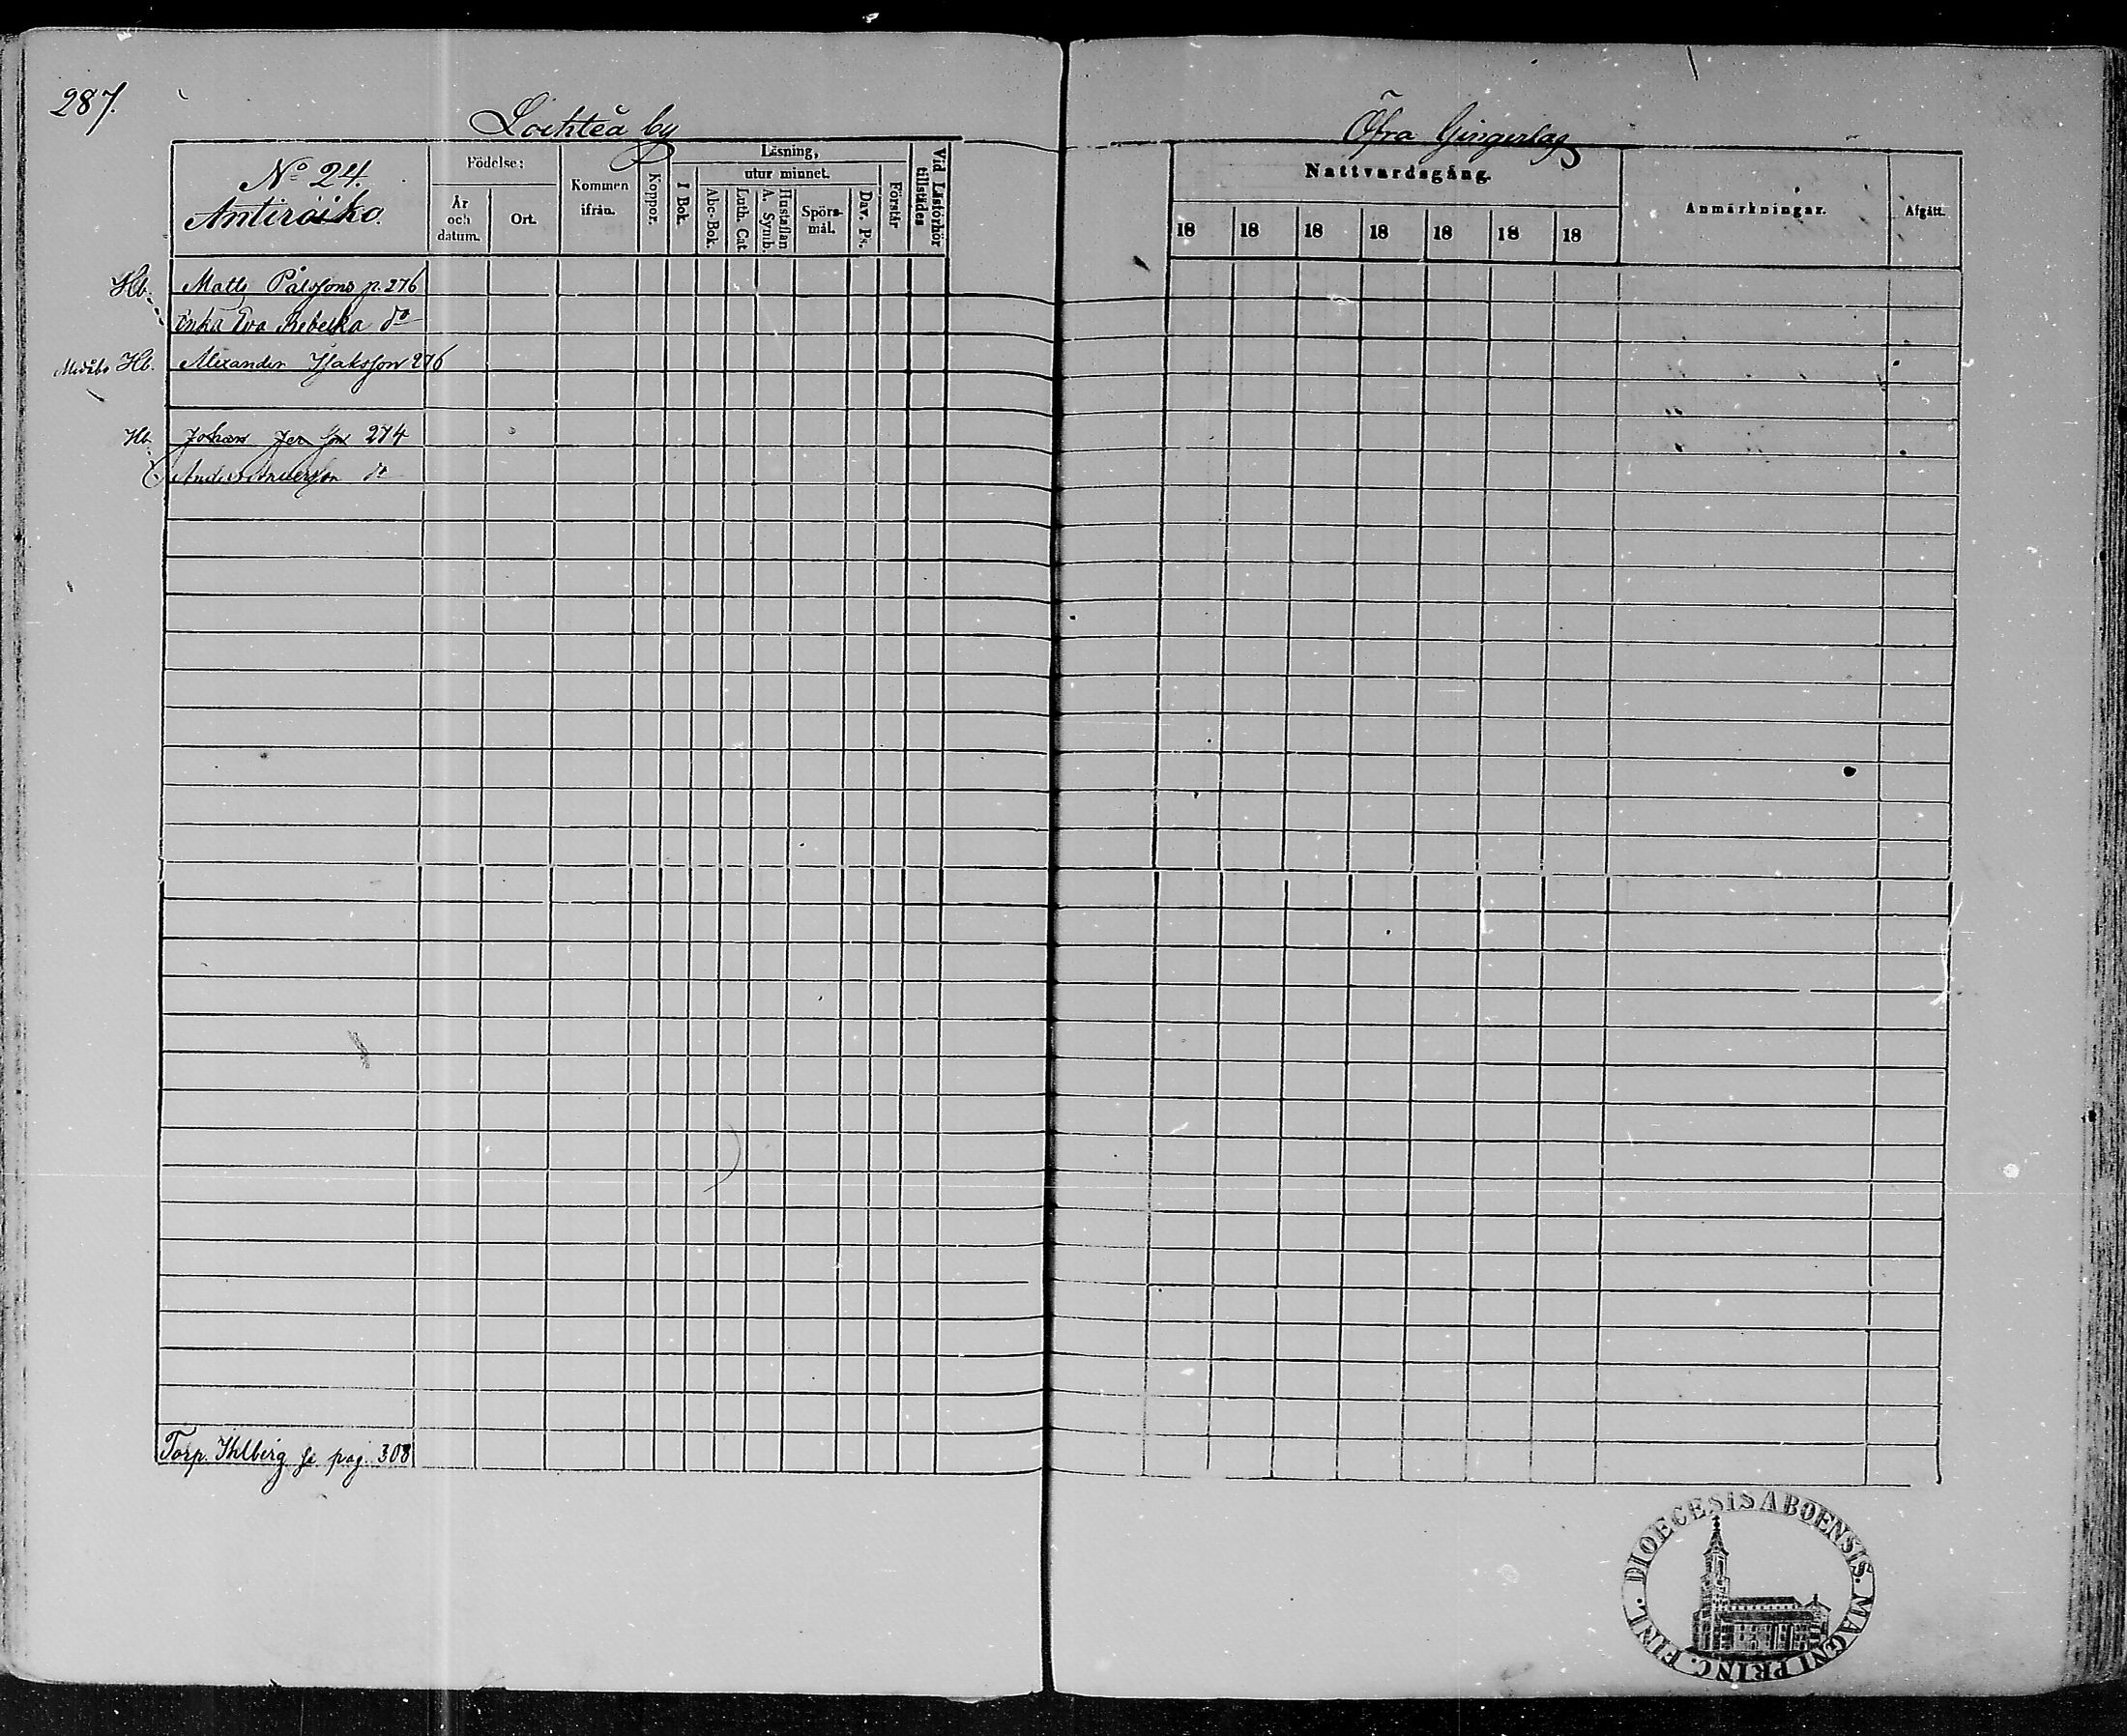 287.
Lochteå by
Öfra Gingerlag
No 24.
Antiroiko.
Födelse:
År och datum.
Ort.
Kommen ifrån.
Koppor.
Läsning,
I Bok.
utur minnet.
Abc-Bok.
Luth. Cat.
A. Symb.
Hustaflan
Spörs-mål.
Dav. Ps.
Förstår
Vid Läsförhör tillstädes
Nattvardsgång.
18 18 18 18 18 18 18
Anmärkningar.
Afgått.
Hb. Matts Pålssons p. 276
Enka Eva Rebecka do
Hb. Alexander Isaksson 276
Hb. Johan Jer son 274
Anders Andersson do
Torp. Ihlberg se pag. 308
DIOECESIS ABOENSIS. MAGNI PRINC. FINL.